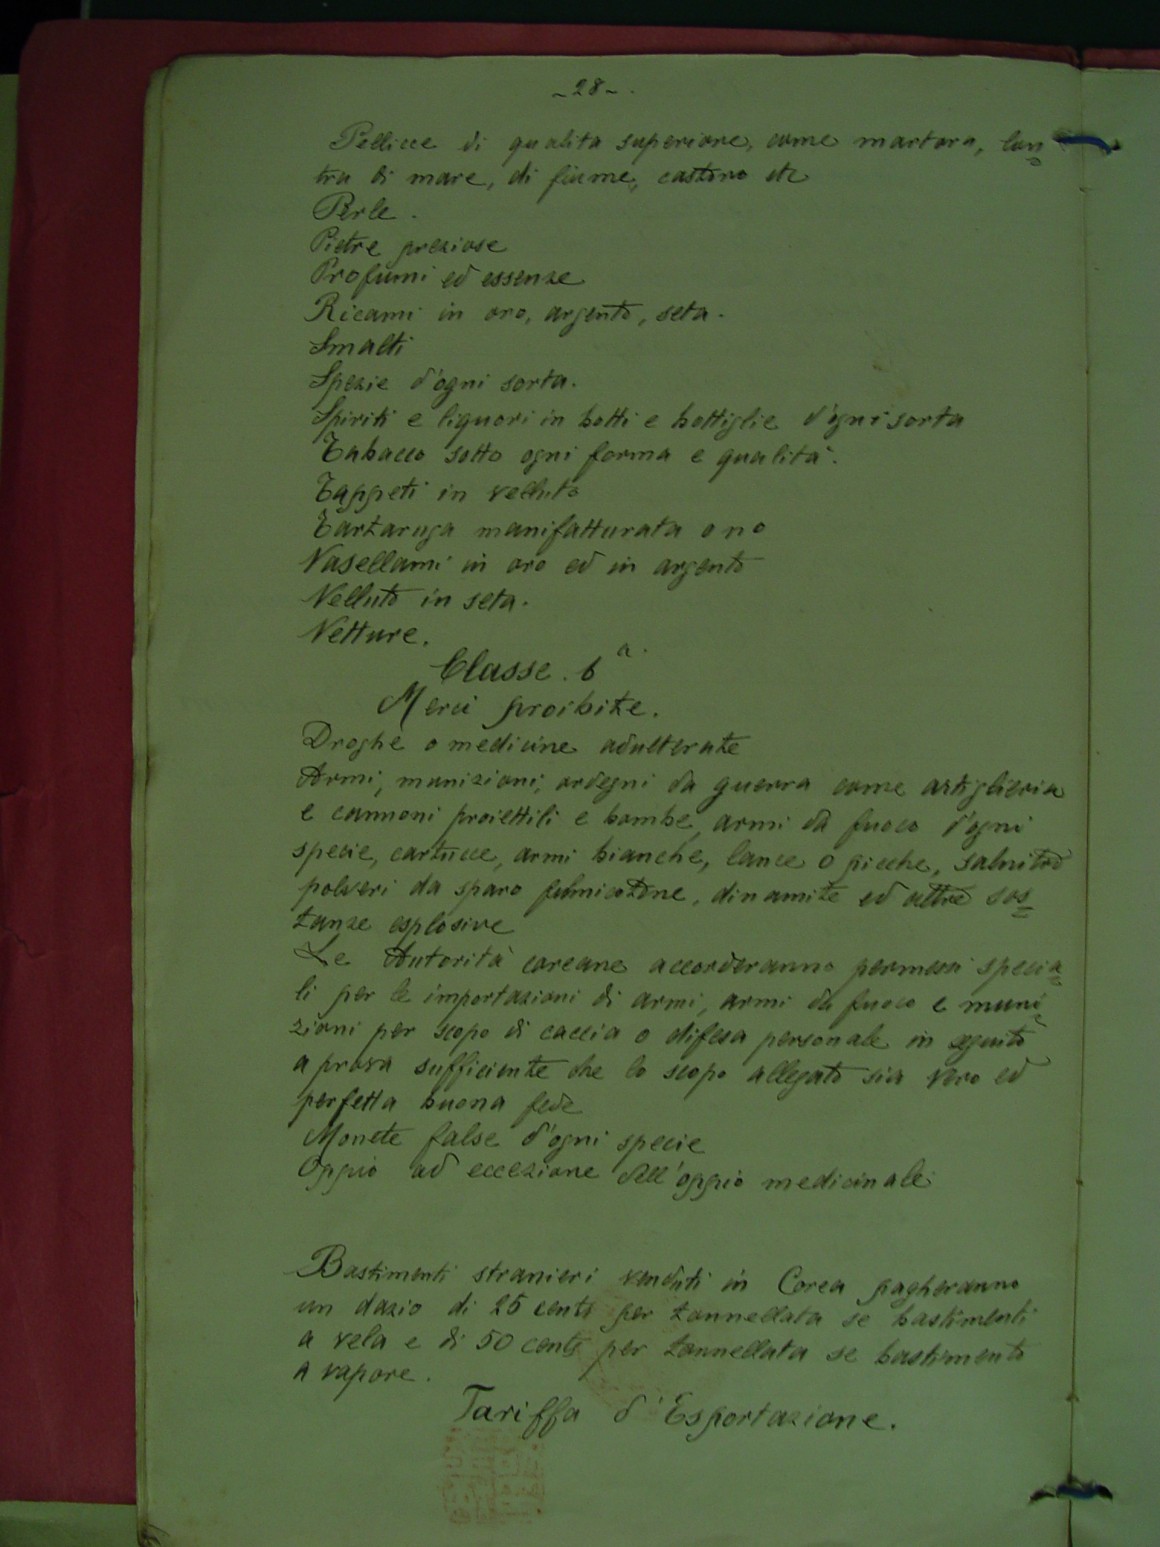 ~ 28 ~.
Pellicce di qualita superiore, come martora, lon=
tra di mare, di fiume, castoro etc
Perle.
Pietre preziose
Profumi ed essenze
Ricami in oro, argento, seta.
Smalti
Spezie d'ogni sorta.
Spiriti e liquori in botti e bottiglie d'ogni sorta
Tabacco sotto ogni forma e qualità.
Tappeti in velluto
Tartaruga manifatturata o no
Vasellami in oro ed in argento
Velluto in seta.
Vetture.
Classe. 6a.
Merci proibite.
Droghe o medicine adulterate
Armi, munizioni, ordegni da guerra come artiglieria
e cannoni proiettili e bombe, armi da fuoco d'ogni
specie, cartucce, armi bianche, lance o picche, salnitro
polveri da sparo fulmicotone, dinamite ed altre sos=
tanze esplosive
Le Autorità coreane accorderanno permessi specia=
li per le importazioni di armi, armi da fuoco e muni=
zioni per scopo di caccia o difesa personale in seguito
a prova sufficiente che lo scopo allegato sia vero ed
perfetta buona fede
Monete false d'ogni specie
Oppio ad eccezione dell'oppio medicinale
Bastimenti stranieri venduti in Corea pagheranno
un dazio di 25 cents per tonnellata se bastimenti
a vela e di 50 cents per tonnellata se bastimento
a vapore.
Tariffa d'Esportazione.